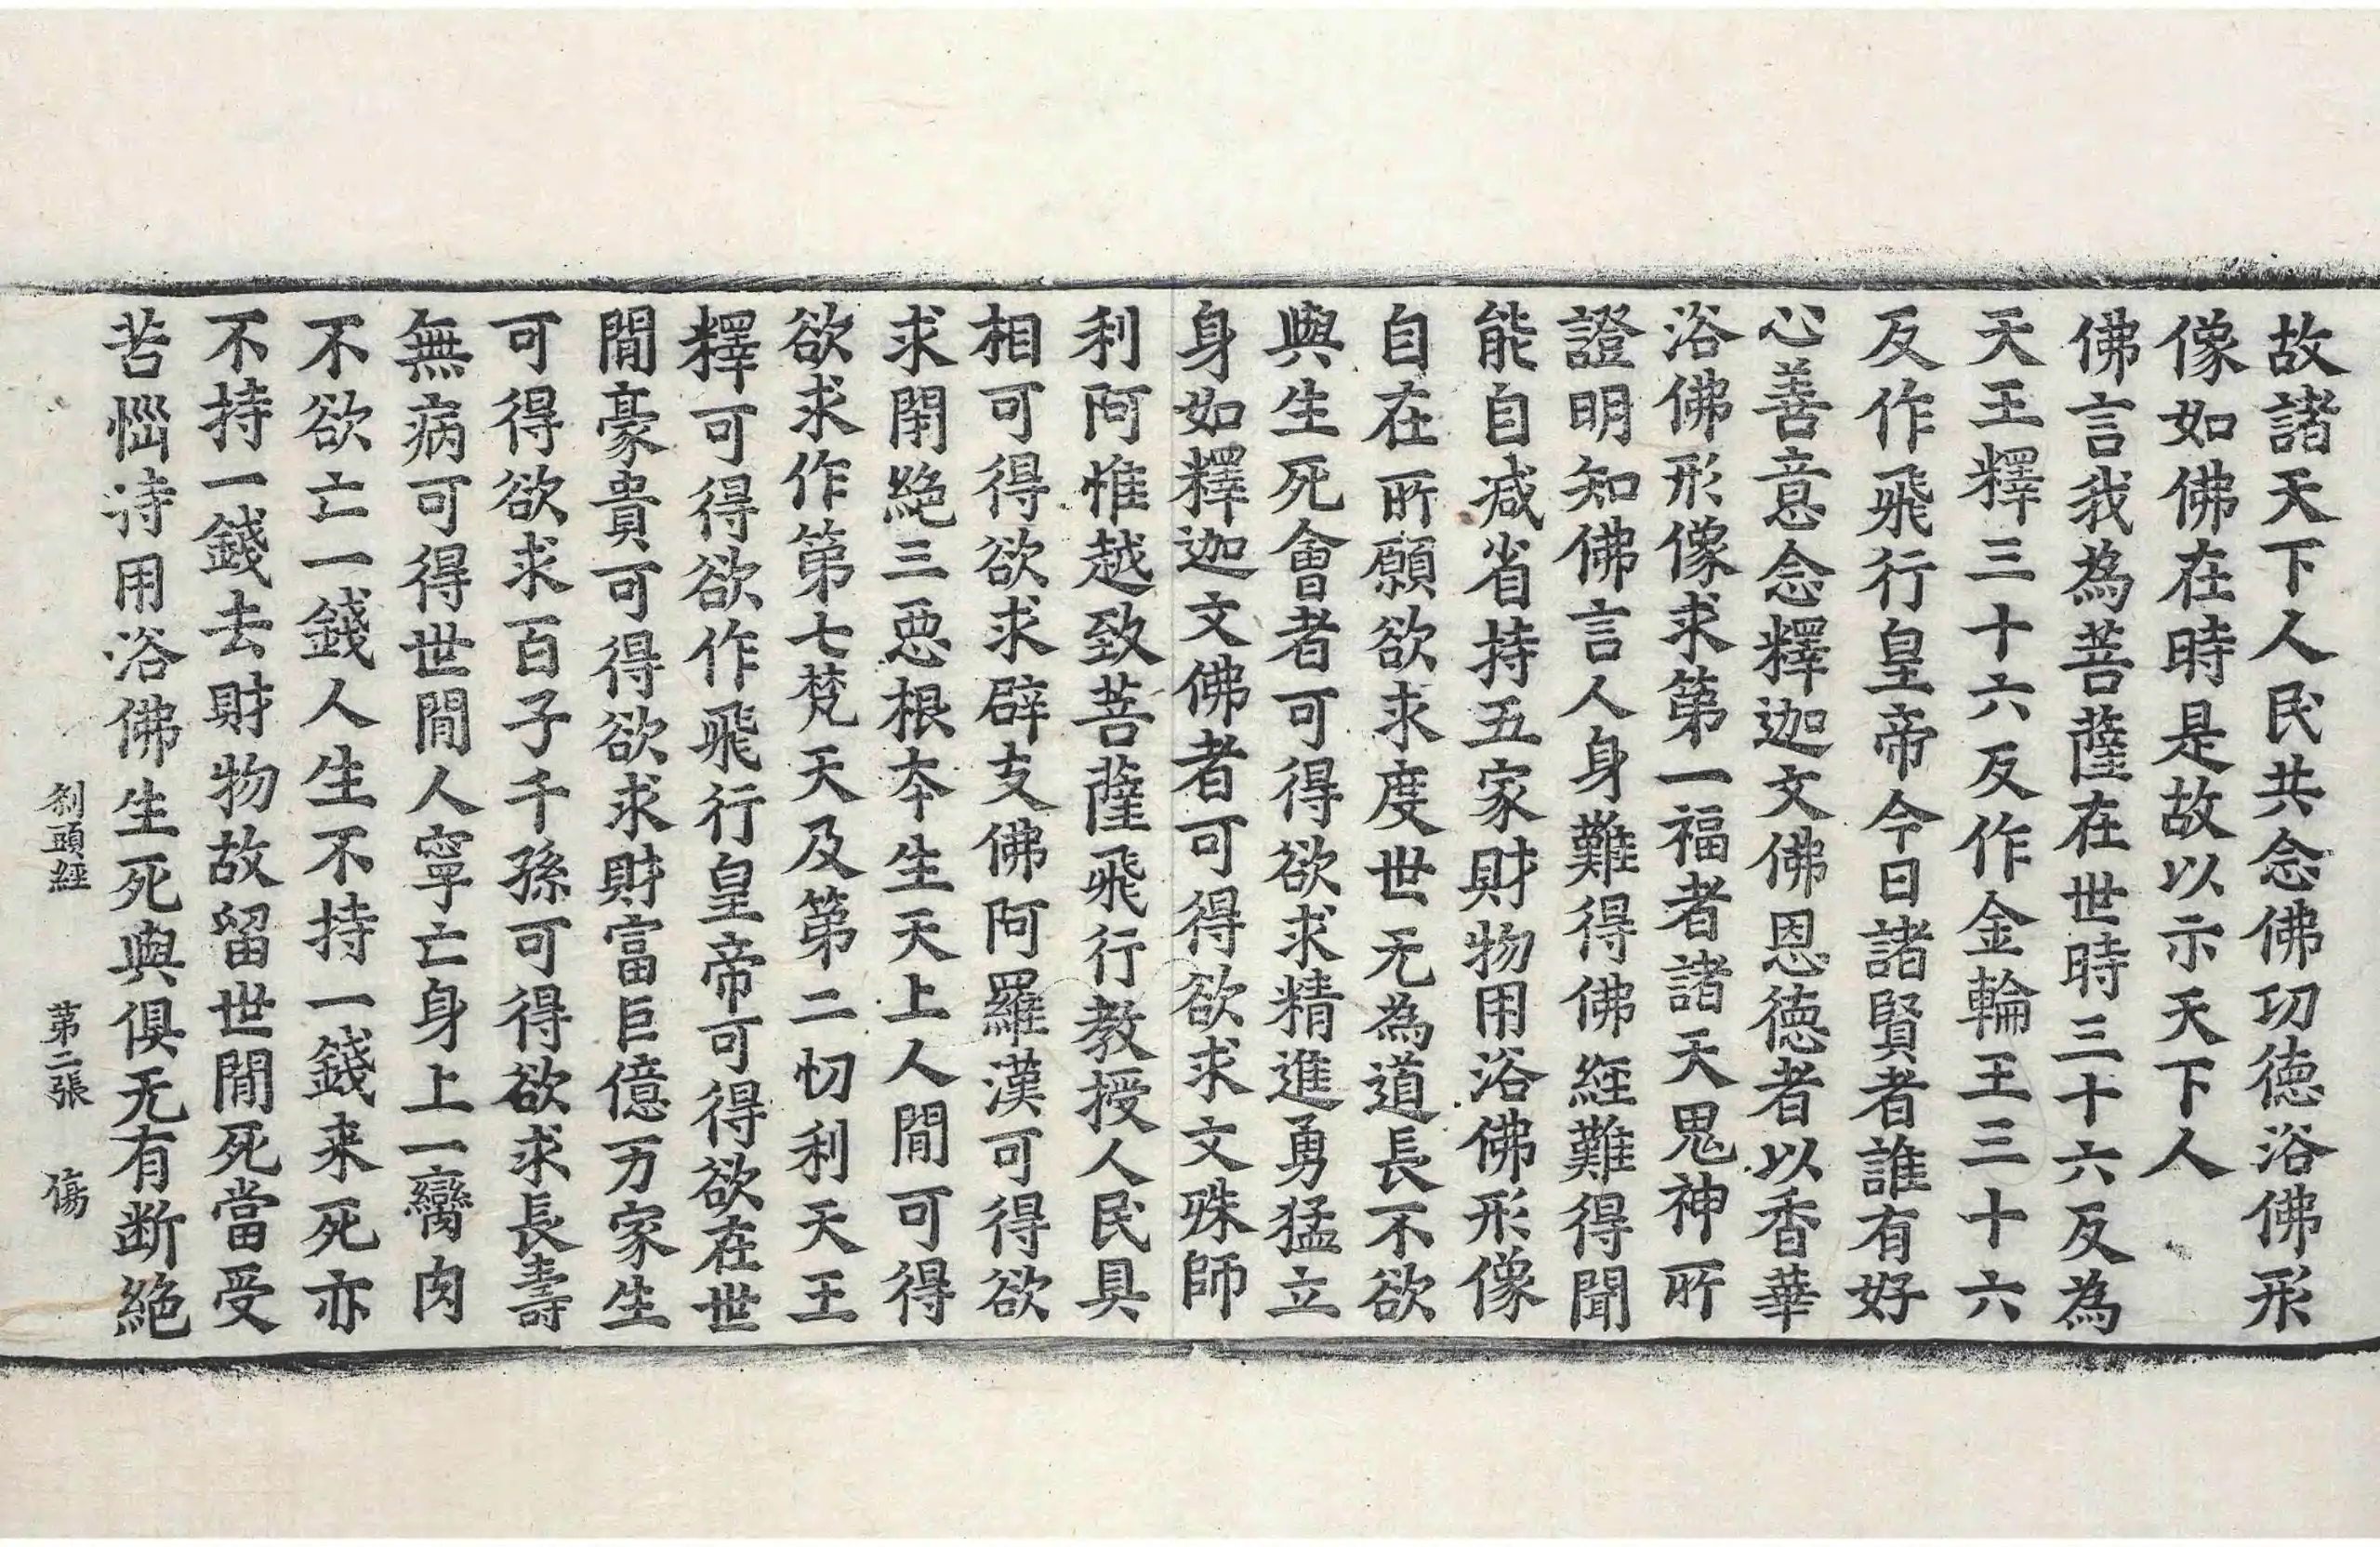 故諸天下人民共念佛功德浴佛形
像如佛在時是故以示天下人
佛言我為菩薩在世時三十六反為
天王釋三十六反作金輪王三十六
反作飛行皇帝今日諸賢者誰有好
心善意念釋迦文佛恩德者以香華
浴佛形像求第一福者諸天鬼神所
證明知佛言人身難得佛經難得聞
能自减省持五家財物用浴佛形像
自在所願欲求度世无為道長不欲
與生死會者可得欲求精進勇猛立
身如釋迦文佛者可得欲求文殊師
利阿惟越致菩薩飛行教授人民具
相可得欲求辟支佛阿羅漢可得欲
求閇絕三惡根夲生天上人閒可得
欲求作第七梵天及第二忉利天王
釋可得欲作飛行皇帝可得欲在世
閒豪貴可得欲求財富巨億万家生
可得欲求百子千孫可得欲求長壽
無病可得世閒人寧亡身上一臠肉
不欲亡一錢人生不持一錢来死亦
不持一錢去財物故留世閒死當受
苦惱诗用浴佛生死與俱无有断絕
刹頭經 第二張 傷